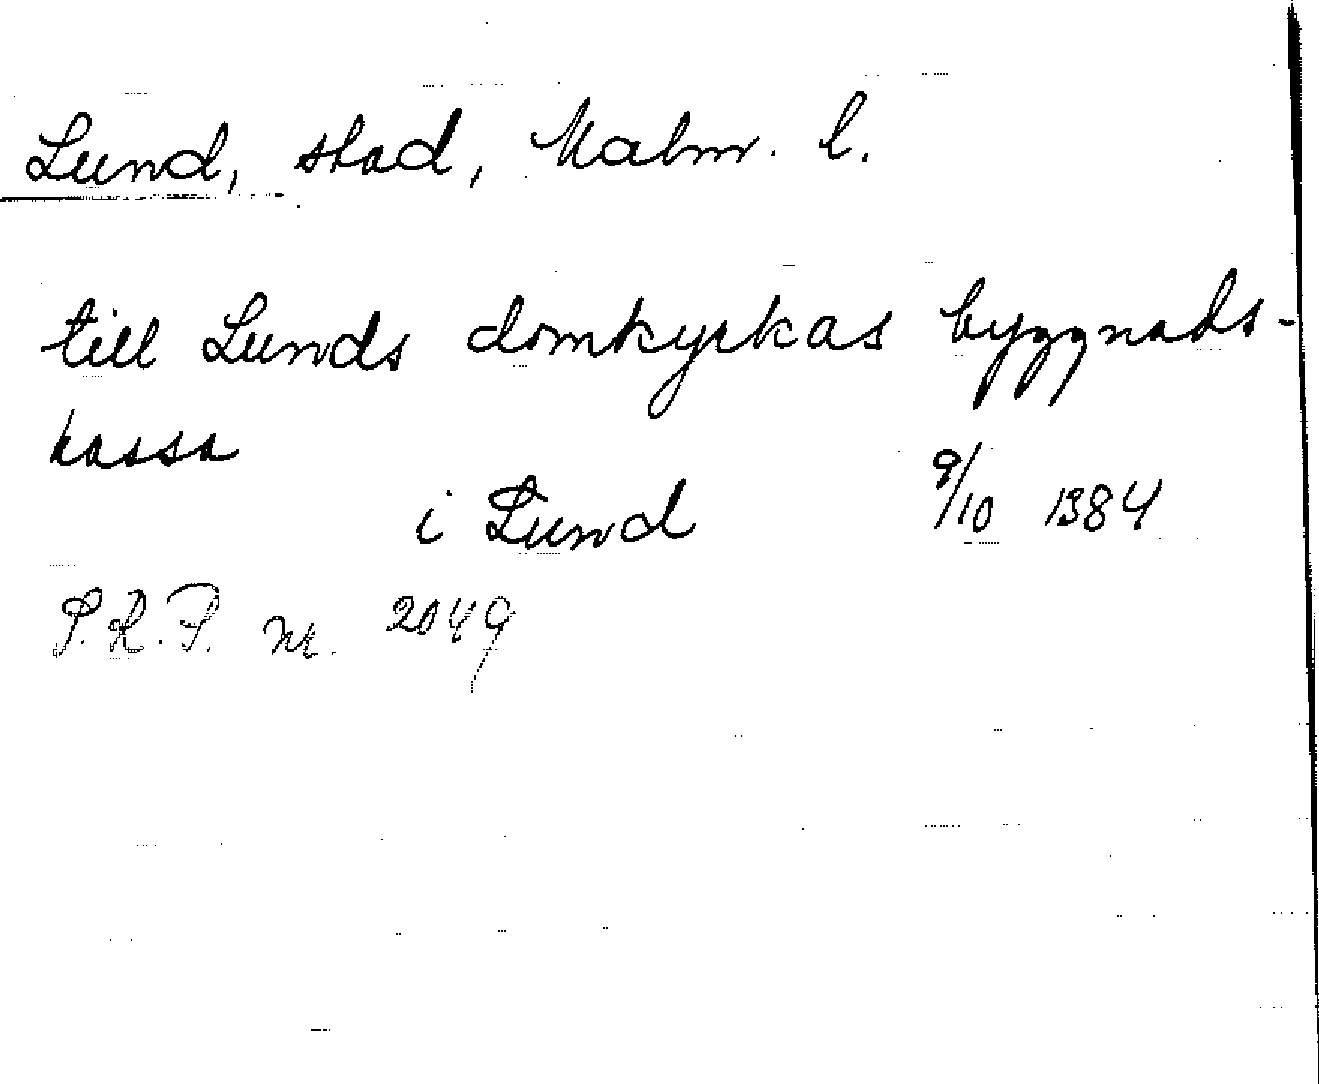 Lund, stad, Malm. l.
till Lunds domkyrkas byggnads-
kassa
i Lund 9/10 1384
S.R.P. nr. 2049